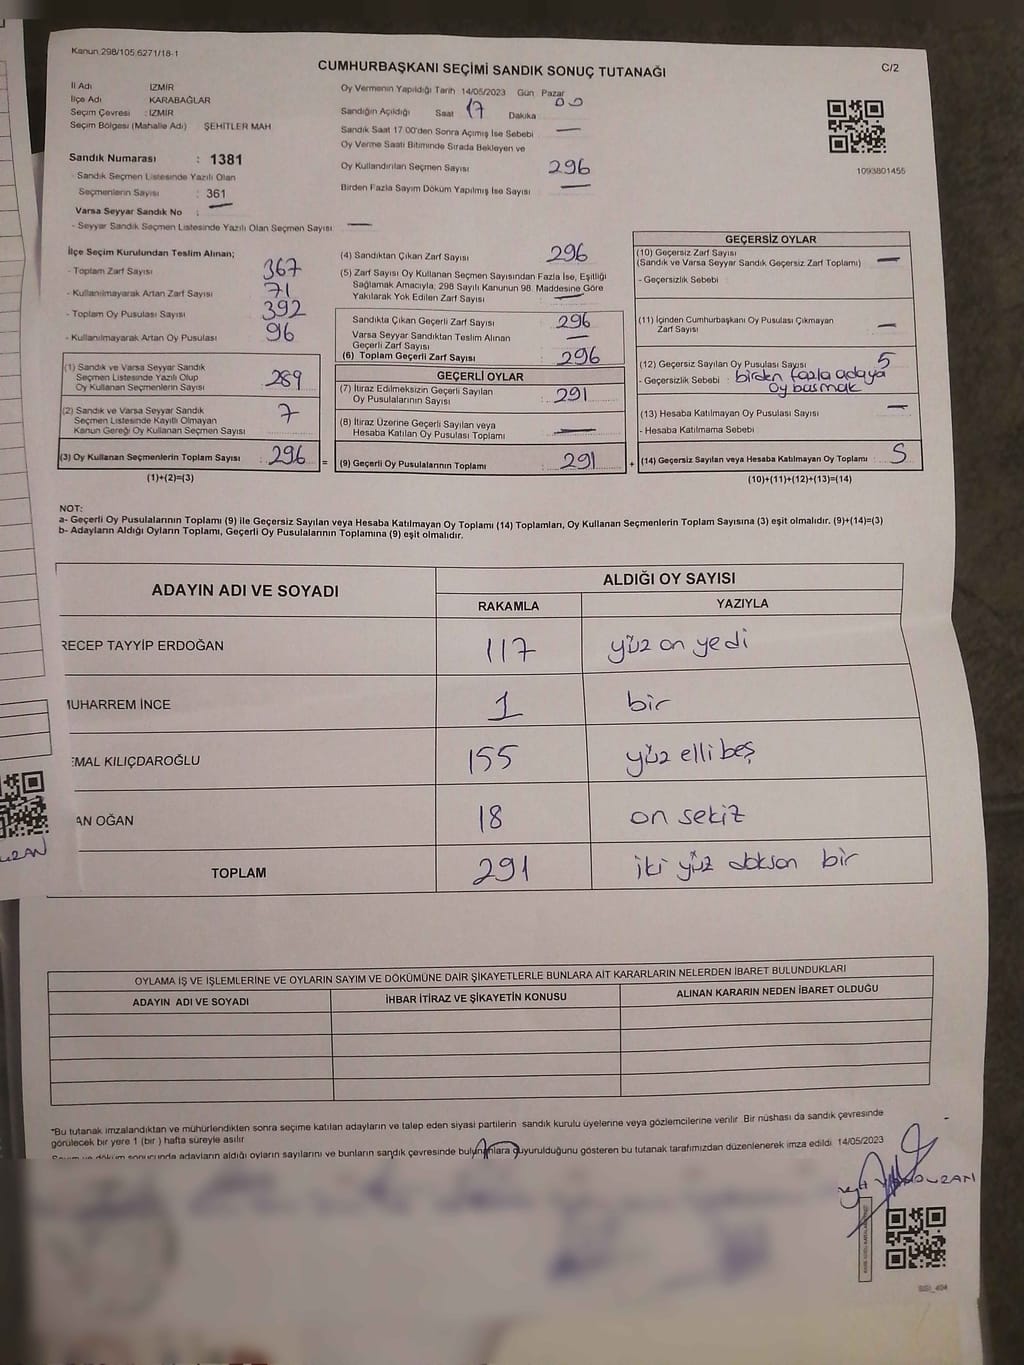 Kanun.298/105.6271/18-1
CUMHURBAŞKANI SEÇİMİ SANDIK SONUÇ TUTANAĞI
C/2
İl Adı İZMİR
İlçe Adı KARABAĞLAR
Seçim Çevresi : İZMİR
Seçim Bölgesi (Mahalle Adı) ŞEHİTLER MAH
Sandık Numarası : 1381
- Sandık Seçmen Listesinde Yazılı Olan
Seçmenlerin Sayısı : 361
Varsa Seyyar Sandık No : —
- Seyyar Sandık Seçmen Listesinde Yazılı Olan Seçmen Sayısı —
Oy Vermenin Yapıldığı Tarih 14/05/2023 Gün Pazar
Sandığın Açıldığı Saat 17 Dakika 00
Sandık Saat 17:00'den Sonra Açımış İse Sebebi —
Oy Verme Saati Bitiminde Sırada Bekleyen ve
Oy Kullandırılan Seçmen Sayısı 296
Birden Fazla Sayım Döküm Yapılmış İse Sayısı —
1093801455
İlçe Seçim Kurulundan Teslim Alınan;
- Toplam Zarf Sayısı 367
- Kullanılmayarak Artan Zarf Sayısı 71
- Toplam Oy Pusulası Sayısı 392
- Kullanılmayarak Artan Oy Pusulası 96
(1) Sandık ve Varsa Seyyar Sandık
Seçmen Listesinde Yazılı Olup
Oy Kullanan Seçmenlerin Sayısı 289
(2) Sandık ve Varsa Seyyar Sandık
Seçmen Listesinde Kayıtlı Olmayan
Kanun Gereği Oy Kullanan Seçmen Sayısı 7
(3) Oy Kullanan Seçmenlerin Toplam Sayısı : 296 =
(1)+(2)=(3)
(4) Sandıktan Çıkan Zarf Sayısı 296
(5) Zarf Sayısı Oy Kullanan Seçmen Sayısından Fazla İse, Eşitliği
Sağlamak Amacıyla; 298 Sayılı Kanunun 98. Maddesine Göre
Yakılarak Yok Edilen Zarf Sayısı —
Sandıkta Çıkan Geçerli Zarf Sayısı 296
Varsa Seyyar Sandıktan Teslim Alınan
Geçerli Zarf Sayısı —
(6) Toplam Geçerli Zarf Sayısı : 296
GEÇERLİ OYLAR
(7) İtiraz Edilmeksizin Geçerli Sayılan
Oy Pusulalarının Sayısı 291
(8) İtiraz Üzerine Geçerli Sayılan veya
Hesaba Katılan Oy Pusulası Toplamı —
(9) Geçerli Oy Pusulalarının Toplamı : 291 +
GEÇERSİZ OYLAR
(10) Geçersiz Zarf Sayısı
(Sandık ve Varsa Seyyar Sandık Geçersiz Zarf Toplamı) —
- Geçersizlik Sebebi
(11) İçinden Cumhurbaşkanı Oy Pusulası Çıkmayan
Zarf Sayısı —
(12) Geçersiz Sayılan Oy Pusulası Sayısı 5
- Geçersizlik Sebebi : birden fazla adaya
oy basmak
(13) Hesaba Katılmayan Oy Pusulası Sayısı —
- Hesaba Katılmama Sebebi
(14) Geçersiz Sayılan veya Hesaba Katılmayan Oy Toplamı : 5
(10)+(11)+(12)+(13)=(14)
NOT:
a- Geçerli Oy Pusulalarının Toplamı (9) ile Geçersiz Sayılan veya Hesaba Katılmayan Oy Toplamı (14) Toplamları, Oy Kullanan Seçmenlerin Toplam Sayısına (3) eşit olmalıdır. (9)+(14)=(3)
b- Adayların Aldığı Oyların Toplamı, Geçerli Oy Pusulalarının Toplamına (9) eşit olmalıdır.
ADAYIN ADI VE SOYADI
ALDIĞI OY SAYISI
RAKAMLA YAZIYLA
RECEP TAYYİP ERDOĞAN 117 yüz on yedi
MUHARREM İNCE 1 bir
EMAL KILIÇDAROĞLU 155 yüz elli beş
AN OĞAN 18 on sekiz
TOPLAM 291 iki yüz doksan bir
OYLAMA İŞ VE İŞLEMLERİNE VE OYLARIN SAYIM VE DÖKÜMÜNE DAİR ŞİKAYETLERLE BUNLARA AİT KARARLARIN NELERDEN İBARET BULUNDUKLARI
ADAYIN ADI VE SOYADI İHBAR İTİRAZ VE ŞİKAYETİN KONUSU ALINAN KARARIN NEDEN İBARET OLDUĞU
*Bu tutanak imzalandıktan ve mühürlendikten sonra seçime katılan adayların ve talep eden siyasi partilerin sandık kurulu üyelerine veya gözlemcilerine verilir. Bir nüshası da sandık çevresinde
görülecek bir yere 1 (bir) hafta süreyle asılır
Sayım ve döküm sonucunda adayların aldığı oyların sayılarını ve bunların sandık çevresinde bulunanlara duyurulduğunu gösteren bu tutanak tarafımızdan düzenlenerek imza edildi. 14/05/2023